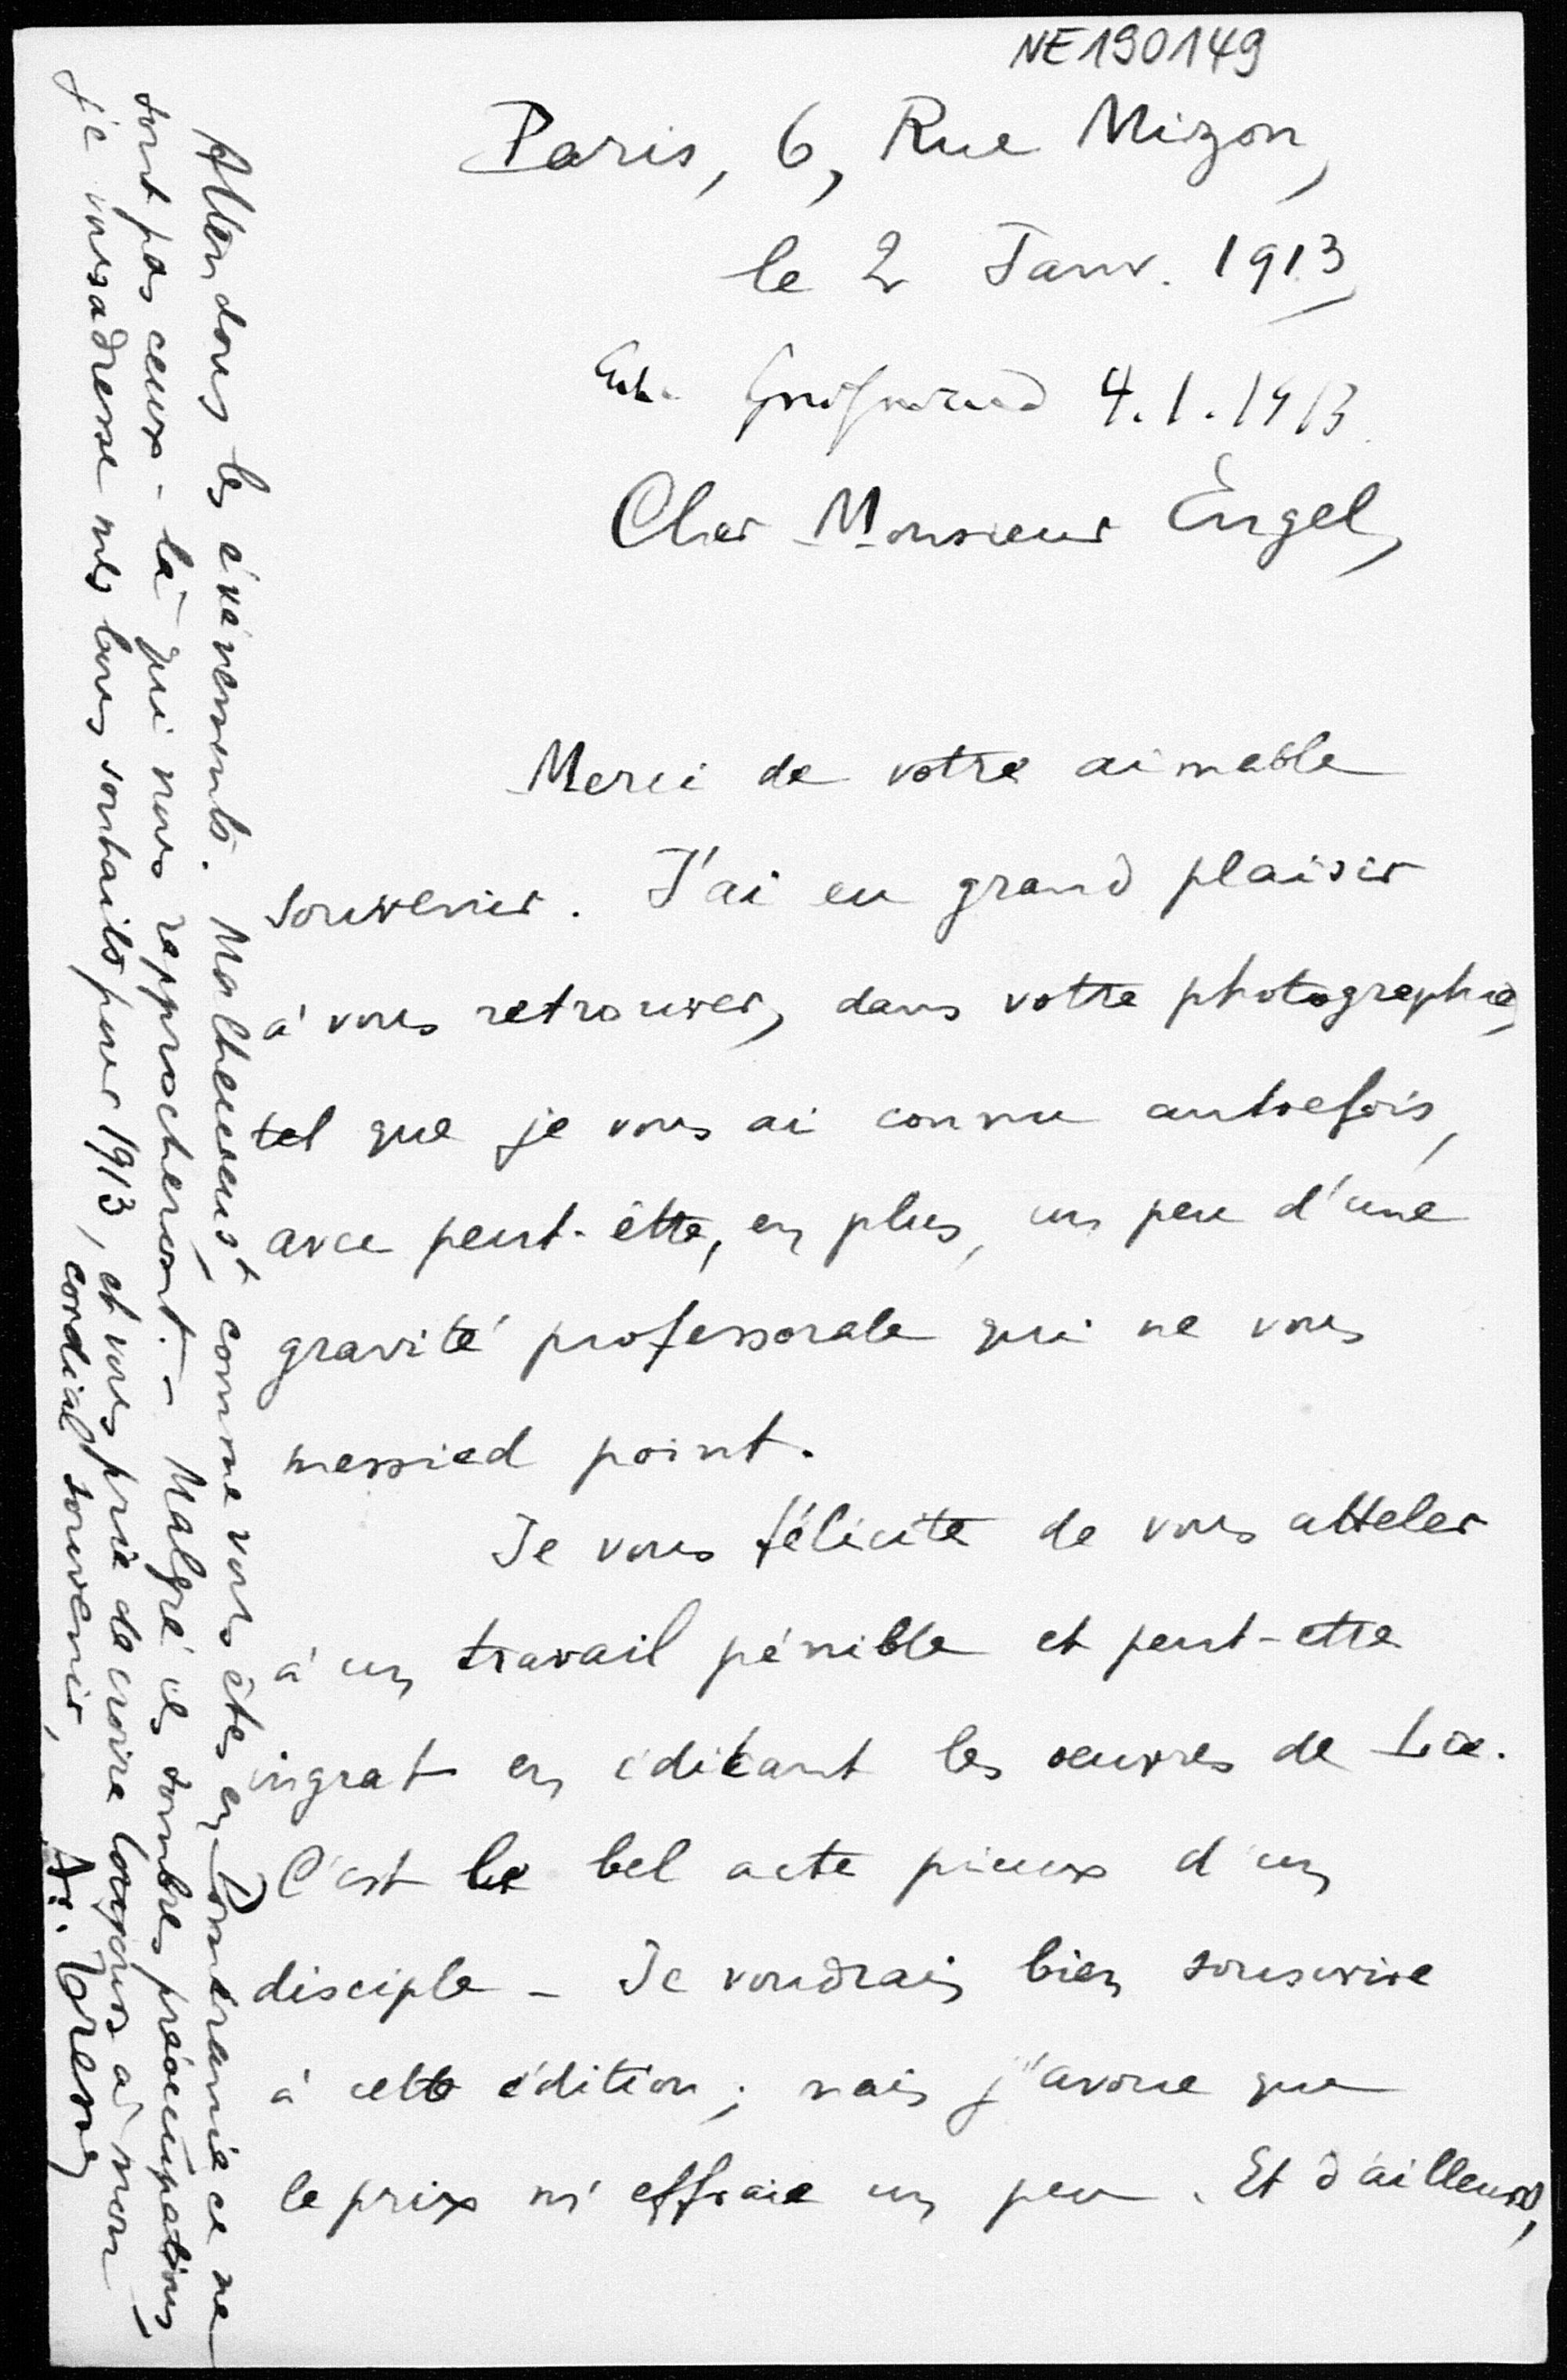 NE190149
Paris, 6, Rue Mizon,
le 2 Janv. 1913
4.1.1913
Cher Monsieur Engel,
Merci de votre aimable
souvenir. J'ai eu grand plaisir
à vous retrouver, dans votre photographie,
tel que je vous ai connu autrefois,
avec peut-être, en plus, un peu d'une
gravité professorale qui ne vous
messied point.
Je vous félicite de vous atteler
à un travail pénible et peut-etre
ingrat en éditant les œuvres de Lie.
C'est le bel acte pieux d'un
disciple - Je voudrais bien souscrire
à cette édition ; mais j'avoue que
le prix m'effraie un peu. Et d'ailleurs,
Attendons les événements. Malheureust, comme vous êtes en Poméranie ce ne
sont pas ceux-là qui nous rapprocheront. - Malgré ces sombres préoccupations,
je vous adresse mes bons souhaits pour 1913, et vous prie de croire toujours à mon
cordial souvenir,
A. Tresse